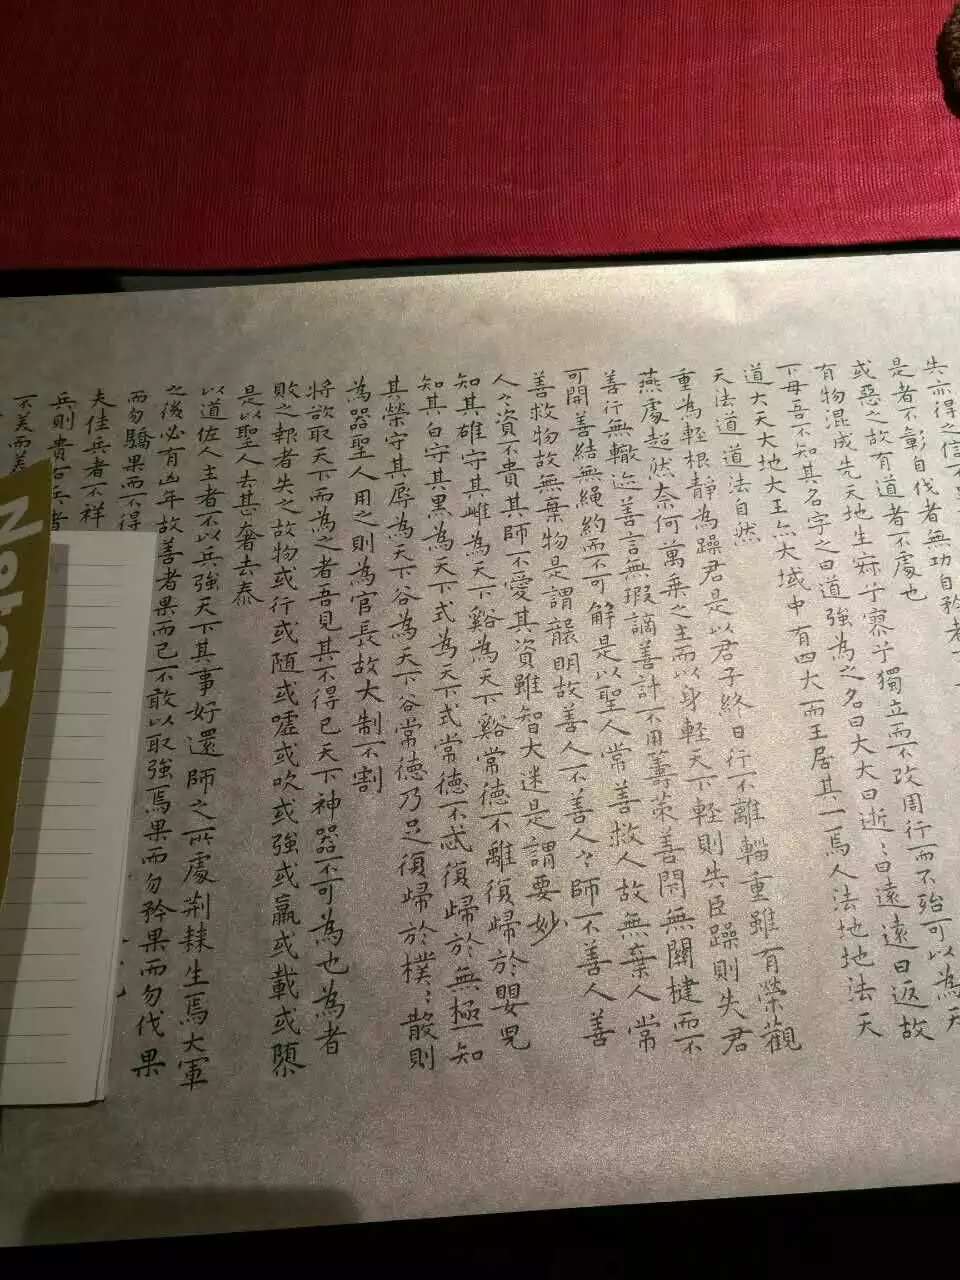 失亦得之信不
是者不彰自伐者無功自矜者
或惡之故有道者不處也
有物混成先天地生寂乎寥乎獨立而不改周行而不殆可以為天
下母吾不知其名字之曰道強為之名曰大大曰逝〻曰遠遠曰返故
道大天大地大王亦大域中有四大而王居其一焉人法地地法天
天法道道法自然
重為輕根靜為躁君是以君子終日行不離輜重雖有榮觀
燕處超然奈何萬乘之主而以身輕天下輕則失臣躁則失君
善行無轍迹善言無瑕謫善計不用籌策善閇無關楗而不
可開善結無繩約而不可解是以聖人常善救人故無棄人常
善救物故無棄物是謂襲明故善人不善人〻師不善人善
人〻資不貴其師不愛其資雖智大迷是謂要妙
知其雄守其雌為天下谿為天下谿常德不離復歸於嬰兒
知其白守其黑為天下式為天下式常德不忒復歸於無極知
其榮守其辱為天下谷為天下谷常德乃足復歸於樸〻散則
為器聖人用之則為官長故大制不割
將欲取天下而為之者吾見其不得已天下神器不可為也為者
敗之執者失之故物或行或隨或噓或吹或強或羸或載或隳
是以聖人去甚奢去泰
以道佐人主者不以兵強天下其事好還師之所處荆棘生焉大軍
之後必有凶年故善者果而已不敢以取強焉果而勿矜果而勿伐果
而勿驕果而不得
夫佳兵者不祥
兵則貴右兵者
不美而美